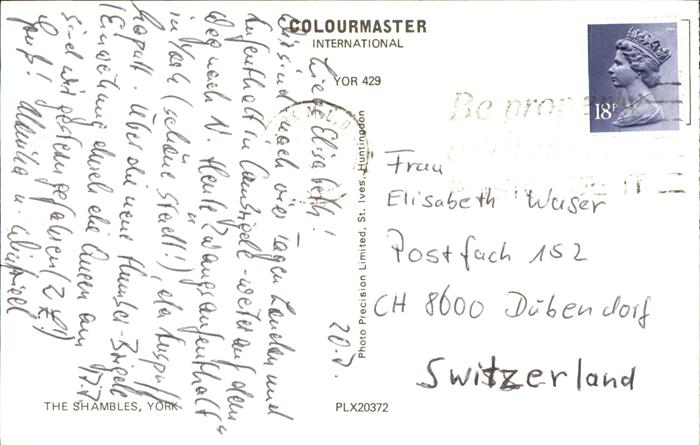 COLOURMASTER
INTERNATIONAL
YOR 429
20.7.
Liebe Elisabeth!
Wir sind nach vier Tagen London und
Aufenthalt in Cambridge weiter auf dem
Weg nach N. Heute "Zwangsaufenthalt"
in York (schöne Stadt!), da Auspuff
kaputt. Über die neue Humber-Bridge
(Einweihung durch die Queen am 17.7
sind wir gestern gefahren (2 £!)
Gruß! u. Winfried
Photo Precision Limited, St. Ives, Huntingdon
18P
Be properly
IT
Frau
Elisabeth Waser
Postfach 152
CH 8600 Dübendorf
Switzerland
THE SHAMBLES, YORK
PLX20372